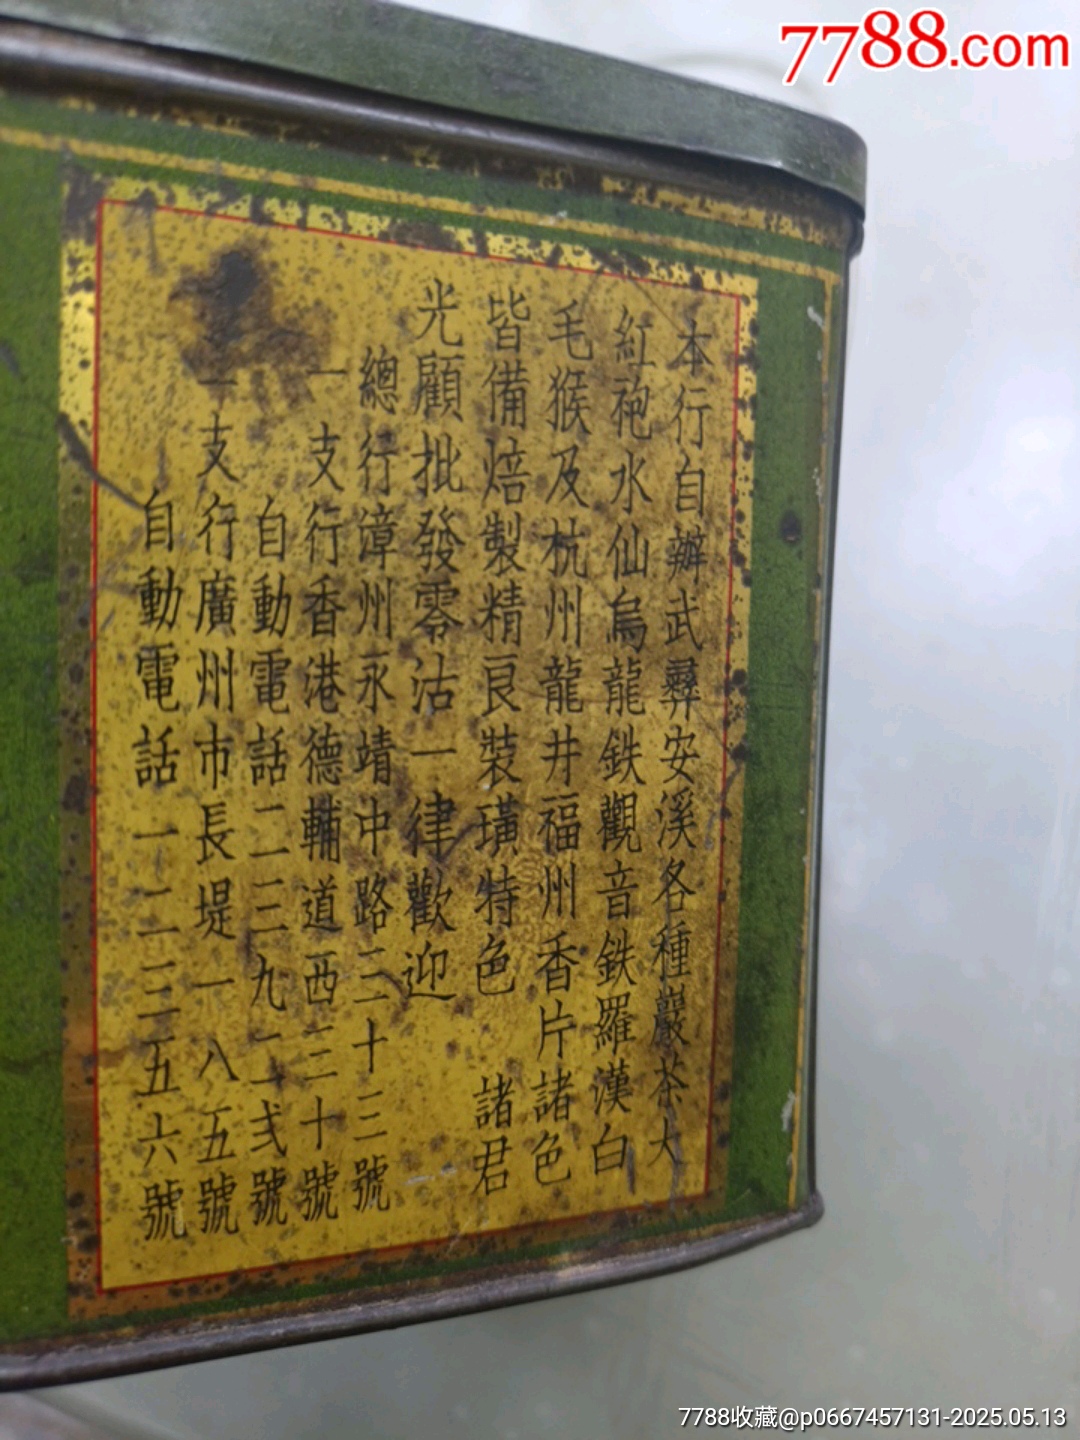 7788.com
本行自辦武彝安溪各種巖茶大
紅袍水仙烏龍鉄觀音鉄羅漢白
毛猴及杭州龍井福州香片諸色
皆備焙製精良裝璜特色 諸君
光顧批發零沽一律歡迎
總行漳州永靖中路三十三號
一支行香港德輔道西三十號
自動電話二二三九一一弍號
一支行廣州市長堤一八五號
自動電話一二三五六號
7788收藏@p0667457131-2025.05.13